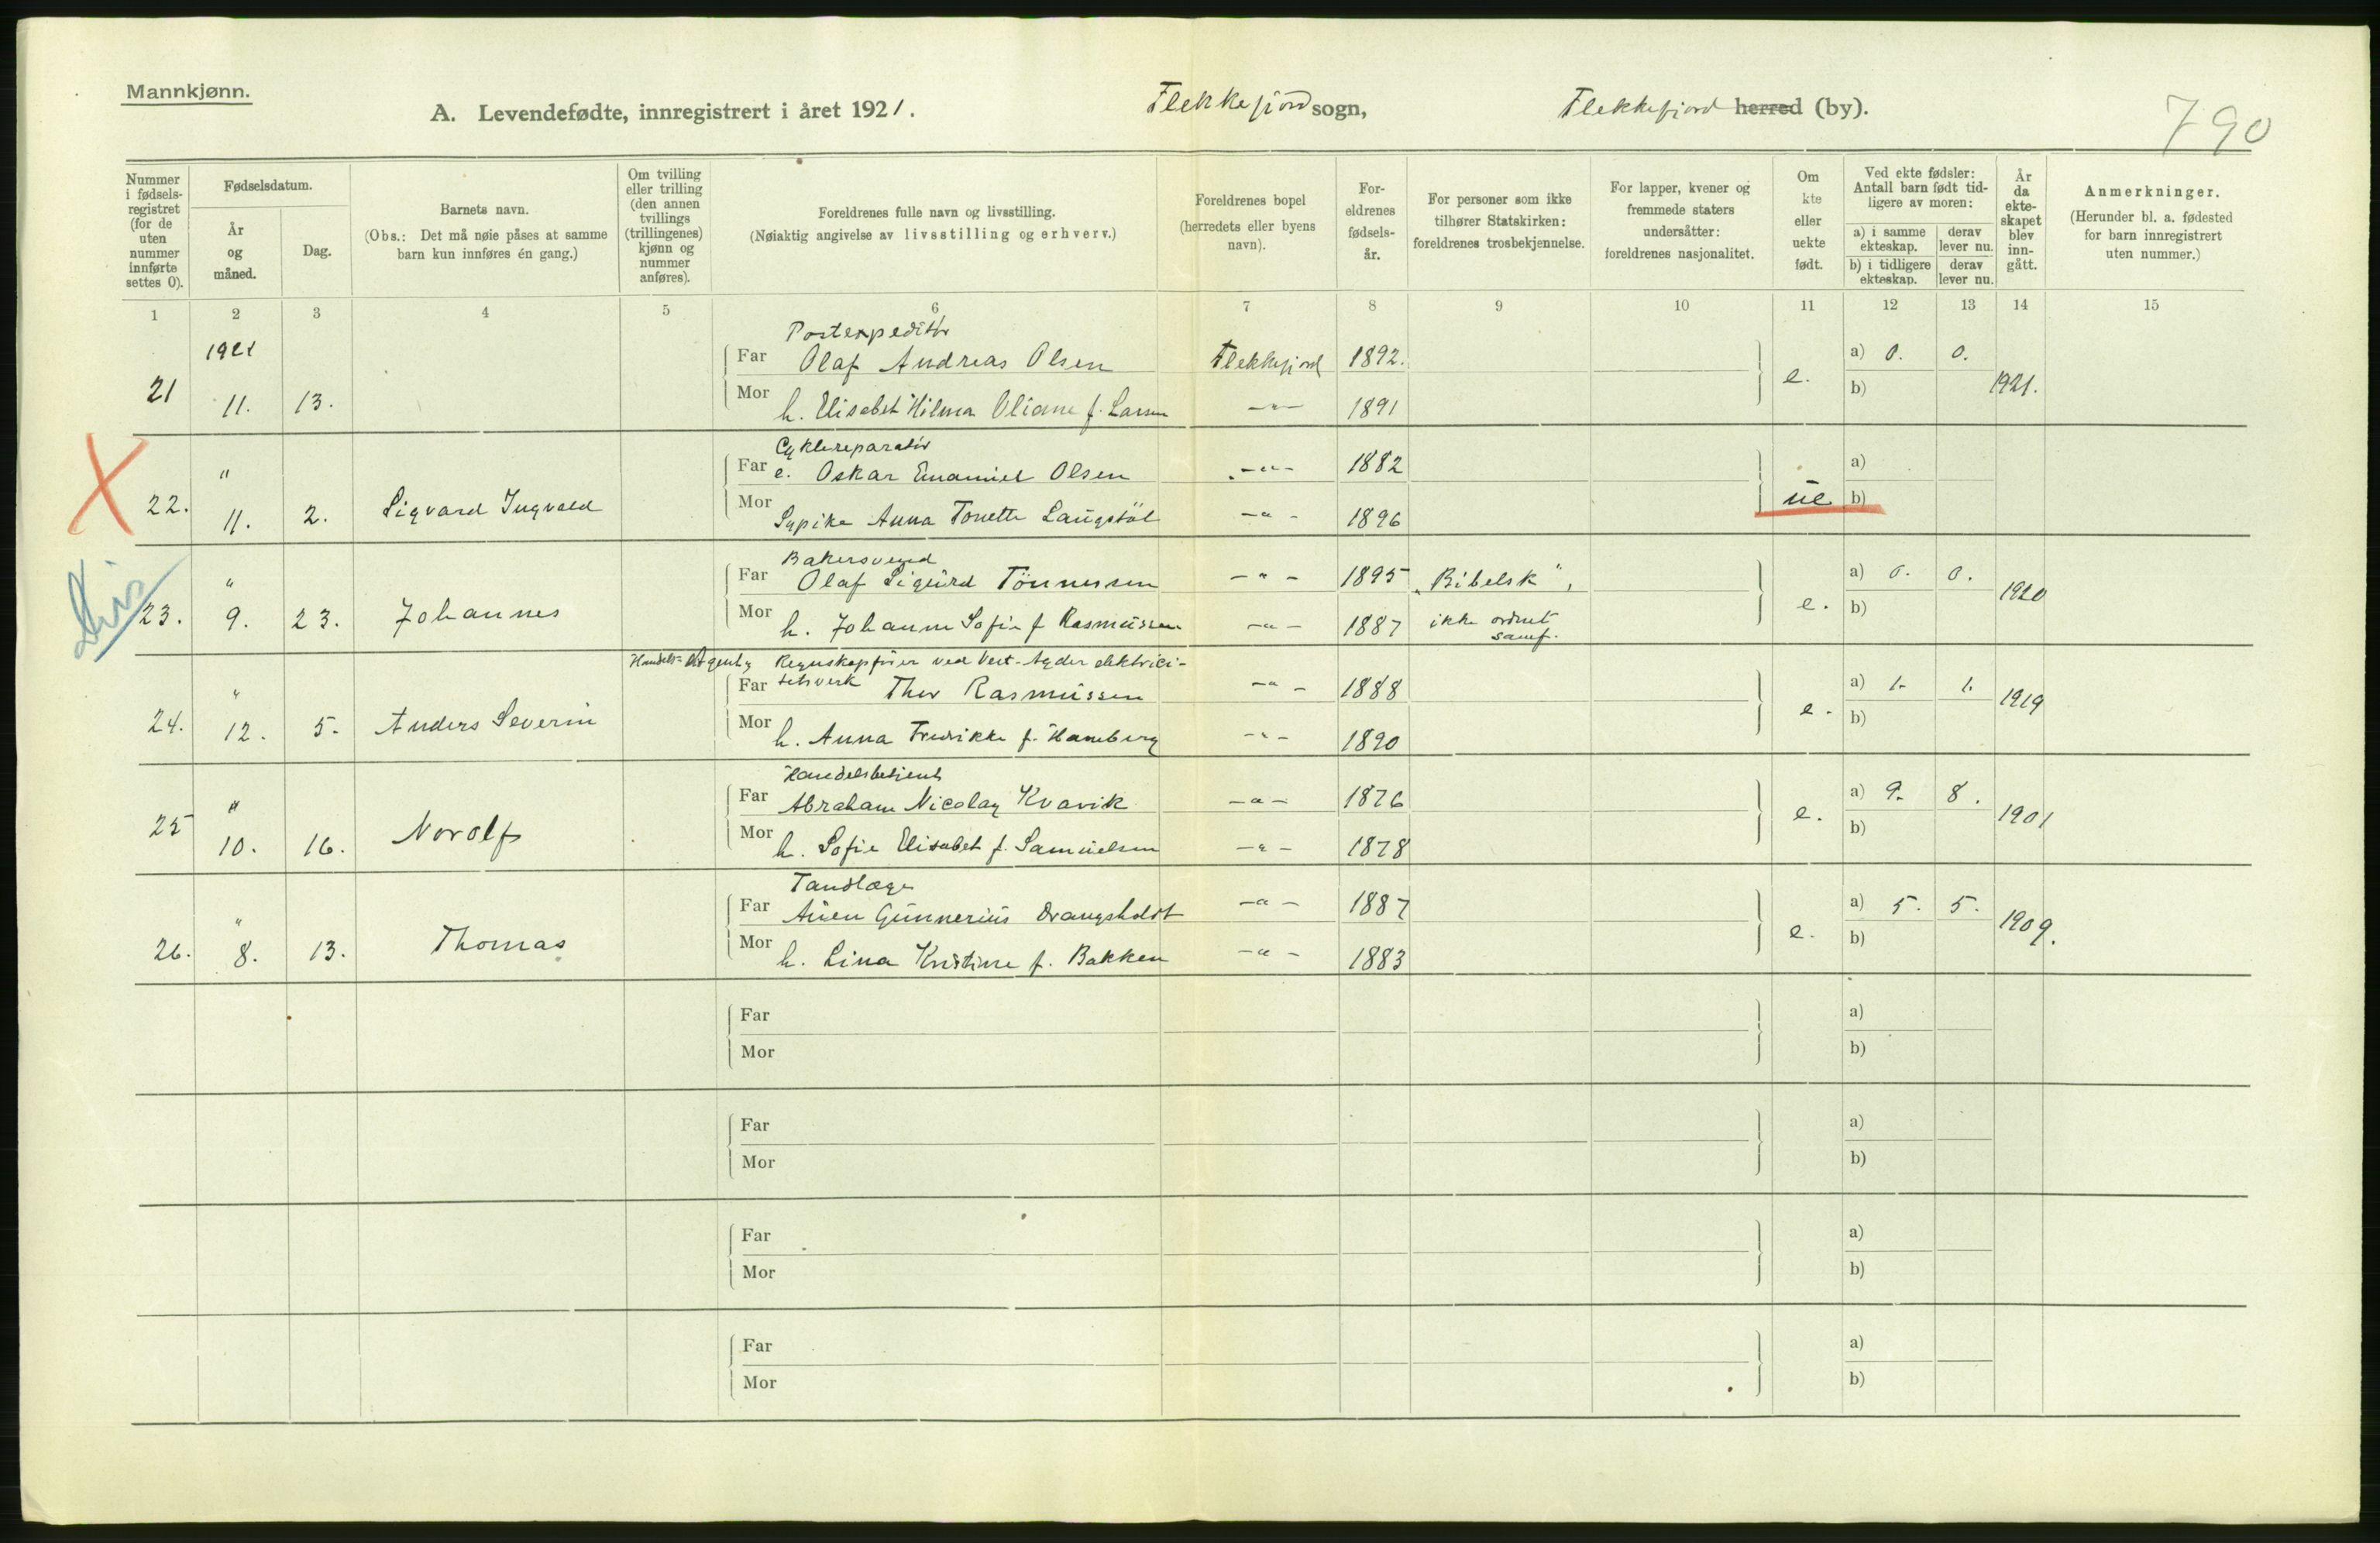 Mannkjønn.
A. Levendefødte, innregistrert i året 1921.
Flekkefjord sogn,
Flekkefjord herred (by).
790
Nummer i fødsels-registret (for de uten nummer innførte settes 0).
Fødselsdatum.
År og måned.
Dag.
Barnets navn.
(Obs.: Det må nøie påses at samme barn kun innføres én gang.)
Om tvilling eller trilling (den annen tvillings (trillingenes) kjønn og nummer anføres).
Foreldrenes fulle navn og livsstilling.
(Nøiaktig angivelse av livsstilling og erhverv.)
Foreldrenes bopel (herredets eller byens navn).
For-eldrenes fødsels-år.
For personer som ikke tilhører Statskirken: foreldrenes trosbekjennelse.
For lapper, kvener og fremmede staters undersåtter: foreldrenes nasjonalitet.
Om kte eller uekte født.
Ved ekte fødsler: Antall barn født tid-ligere av moren:
a) i samme ekteskap.
derav lever nu.
b) i tidligere ekteskap.
derav lever nu.
År da ekte-skapet blev inn-gått.
Anmerkninger.
(Herunder bl. a. fødested for barn innregistrert uten nummer.)
1 2 3 4 5 6 7 8 9 10 11 12 13 14 15
1921
Postexpeditör
21 11. 13.
Far Olaf Andreas Olsen Flekkefjord 1892. e. a) 0. 0. 1921.
Mor h. Elisabet Hilma Oliane f. Larsen -"- 1891 b)
X
Cyklereparatör
22. " 11. 2. Sigvard Ingvald
Far e. Oskar Emanuel Olsen -"- 1882 ue a)
Mor Sypike Anna Tonette Langstöl -"- 1896 b)
Bakersvend
23. " 9. 23. Johannes
Far Olaf Sigurd Tönnessen -"- 1895 "Bibelsk", e. a) 0. 0. 1920
Mor h. Johanne Sofie f Rasmussen -"- 1887 ikke ordnet samf. b)
Handels-Agent, Regnskapsfører ved Vest-Agder elektrici-
24. " 12. 5. Anders Severin
Far tetsverk Thor Rasmussen -"- 1888 e. a) 1. 1. 1919
Mor h. Anna Fredrikke f. Hamberg -"- 1890 b)
Handelsbetjent
25 " 10. 16. Norolf
Far Abraham Nicolay Kvavik -"- 1876 e. a) 9. 8. 1901
Mor h. Sofie Elisabet f. Samuelsen -"- 1878 b)
Tandlæge
26. " 8. 13. Thomas
Far Auen Gunnerius Drangsholdt -"- 1887 e. a) 5. 5. 1909.
Mor h. Lina Kristine f. Bakken -"- 1883 b)
Far a)
Mor b)
Far a)
Mor b)
Far a)
Mor b)
Far a)
Mor b)